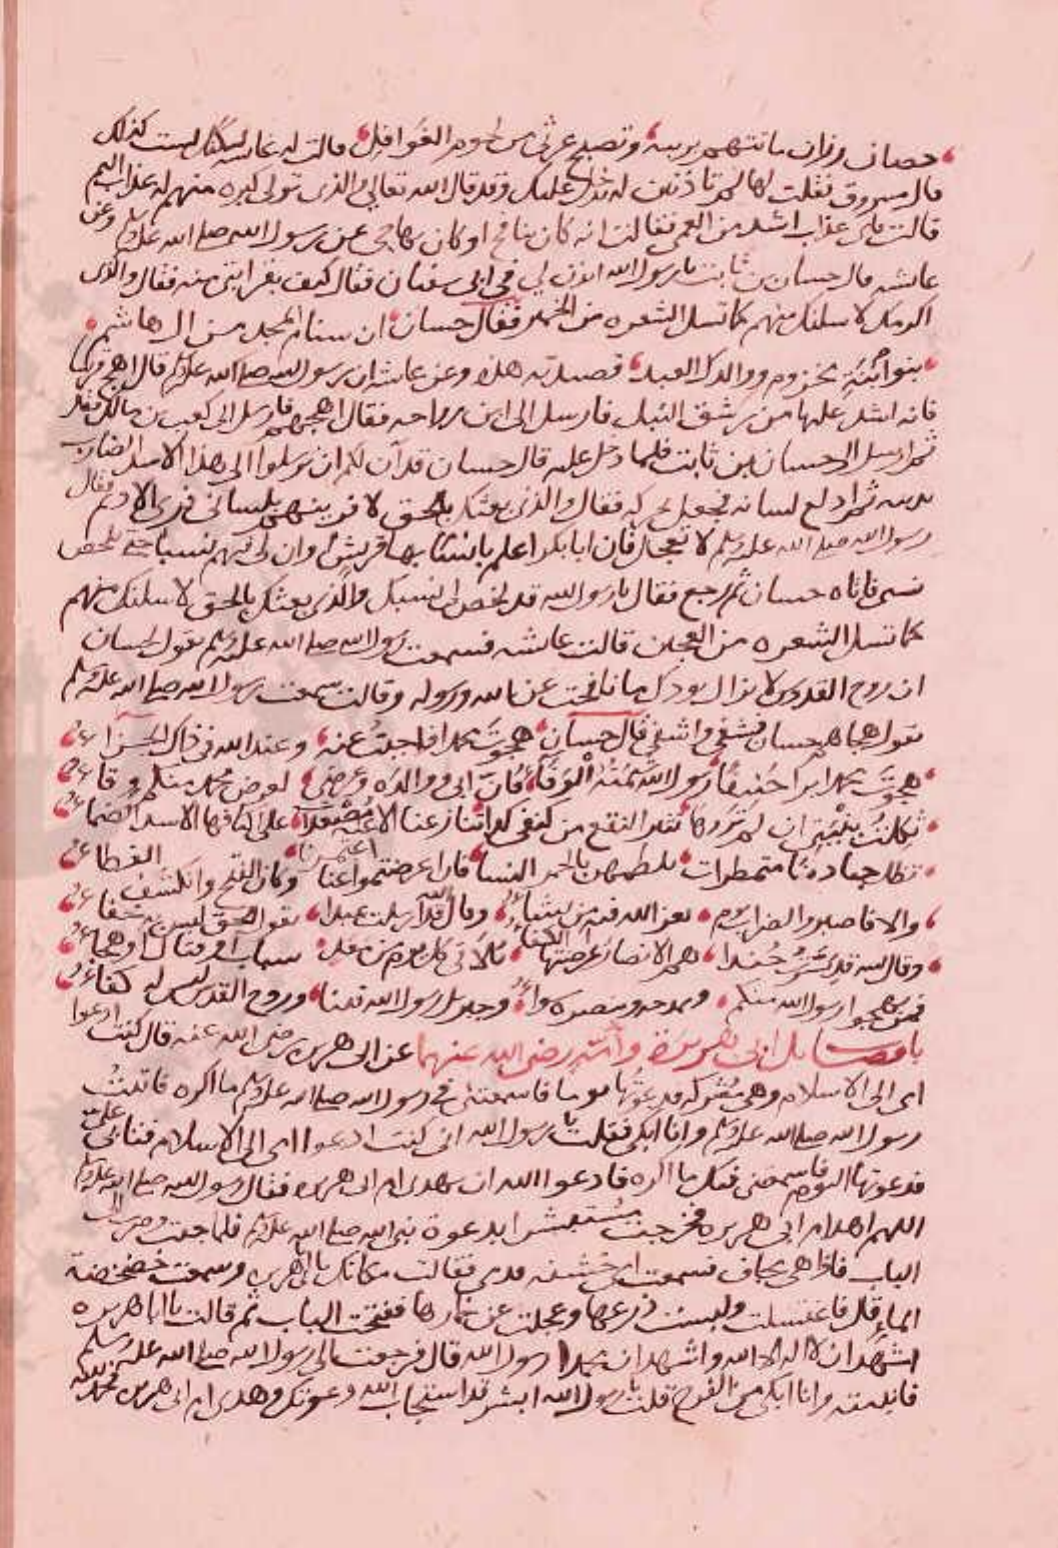 حصان رزان ما تتهم بريبة وتصبح غرثى من لحوم الغوافل قالت له عايشة لكنك لست كذلك
قال مسروق فقلت لها لم تاذنين له يدخل عليك وقد قال الله تعالى والذى تولى كبره منهم له عذاب اليم
قالت فاى عذاب اشد من العمى فقالت انه كان ينافح او كان يهاجى عن رسول الله صلى الله عليه وسلم وعن
عايشه قال حسان بن ثابت يا رسول الله ايذن لي في ابى سفيان فقال كيف بقرابتى منه فقال والذى
اكرمك لاسلنك منهم كما تسل الشعره من الخمير فقال حسان ان سنام المجد من ال هاشم
بنو ابنة مخزوم ووالدك العبد قصيدته هذه وعن عايشه ان رسول الله صلى الله عليه وسلم قال اهج قريشا
فانه اشد عليها من رشق النبل فارسل الى ابن رواحه فقال اهجهم فارسل الى كعب بن مالك
ثم ارسل الى حسان بن ثابت فلما دخل عليه قال حسان قد آن لكم ان ترسلوا الى هذا الاسد الضارب
بذنبه ثم ادلع لسانه فجعل يحركه فقال والذى بعثك بالحق لافرينهم بلساني فرى الاديم فقال
رسول الله صلى الله عليه وسلم لا تعجل فان ابا بكر اعلم بانساب قريش وان لي فيهم نسبا حتى يلخص
نسبى فاتاه حسان ثم رجع فقال يا رسول الله قد لخص لى نسبك والذى بعثك بالحق لاسلنك منهم
كما تسل الشعره من العجين قالت عايشه فسمعت رسول الله صلى الله عليه وسلم يقول لحسان
ان روح القدس لا يزال يؤيدك ما نافحت عن الله ورسوله وقالت سمعت رسول الله صلى الله عليه وسلم
يقول هجاهم حسان فشفى واشتفى قال حسان هجوت محمدا فاجبت عنه وعند الله فى ذاك الجزآء
هجوت محمدا برا حنيفا رسول الله شيمته الوفآء فان ابى ووالده وعرضى لعرض محمد منكم وقاء
ثكلت بنيتى ان لم تروها تثير النقع من كنفى كداء ينازعنا الاعنة مصعدات على اكتافها الاسل الظماء
تظل جيادنا متمطرات تلطمهن بالخمر النسا فان اعرضتموا عنا اعتمرنا وكان الفتح وانكشف الغطاء
والا فاصبروا لضراب يوم يعز الله فيه من يشاء وقال الله قد ارسلت عبدا يقول الحق ليس به خفاء
وقال الله قد يسرت جندا هم الانصار عرضتها اللقاء تلاقى كل يوم من معد سباب او قتال او هجاء
فمن يهجو رسول الله منكم ويمدحه وينصره سواء وجبريل رسول الله فينا وروح القدس ليس له كفاء
باب فضايل ابى هريرة وامه رضى الله عنهما عن ابى هريره رضى الله عنه قال كنت ادعوا
امى الى الاسلام وهى مشركه فدعوتها يوما فاسمعتنى في رسول الله صلى الله عليه وسلم ما اكره فاتيت
رسول الله صلى الله عليه وسلم وانا ابكى فقلت يا رسول الله انى كنت ادعوا امى الى الاسلام فتابى على
فدعوتها اليوم فاسمعتنى فيك ما اكره فادعوا الله ان يهدى ام ابى هريره فقال رسول الله صلى الله عليه وسلم
اللهم اهد ام ابى هريره فخرجت مستبشرا بدعوة نبى الله صلى الله عليه وسلم فلما جئت وصرت الى
الباب فاذا هى مجاف فسمعت امى خشف قدمى فقالت مكانك يا ابا هريره وسمعت خضخضة
الماء قال فاغتسلت ولبست درعها وعجلت عن خمارها ففتحت الباب ثم قالت يا ابا هريره
اشهد ان لا اله الا الله واشهد ان محمدا رسول الله قال فرجعت الى رسول الله صلى الله عليه وسلم
فاتيته وانا ابكى من الفرح قلت يا رسول الله ابشر قد استجاب الله دعوتك وهدى ام ابى هريره فحمد الله